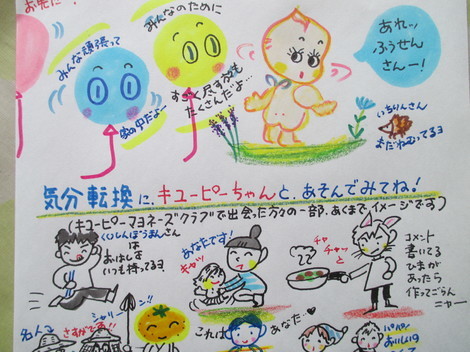 お先に!
みんな頑張って
世の中だよ…
みんなのために
すごく尽す方も
たくさんだよ…
あれッ
ふうせん
さんー!
いちりんさん
まだねむってるヨ
気分転換に、キューピーちゃんと、あそんでみてね!
(キューピーマヨネーズクラブで出会った方々の一部。あくまでイメージです)
くいしんぼうまんさん
は
おはしを
いつも持ってるヨ
あなたです!
キャッ
チャ
チャッと
コメント
書いてる
ひまが
あったら
作ってごらん
ニャー
名人で
さすがです!!
シャリーン!!
これは
あなた♥
パパパ
おいしい